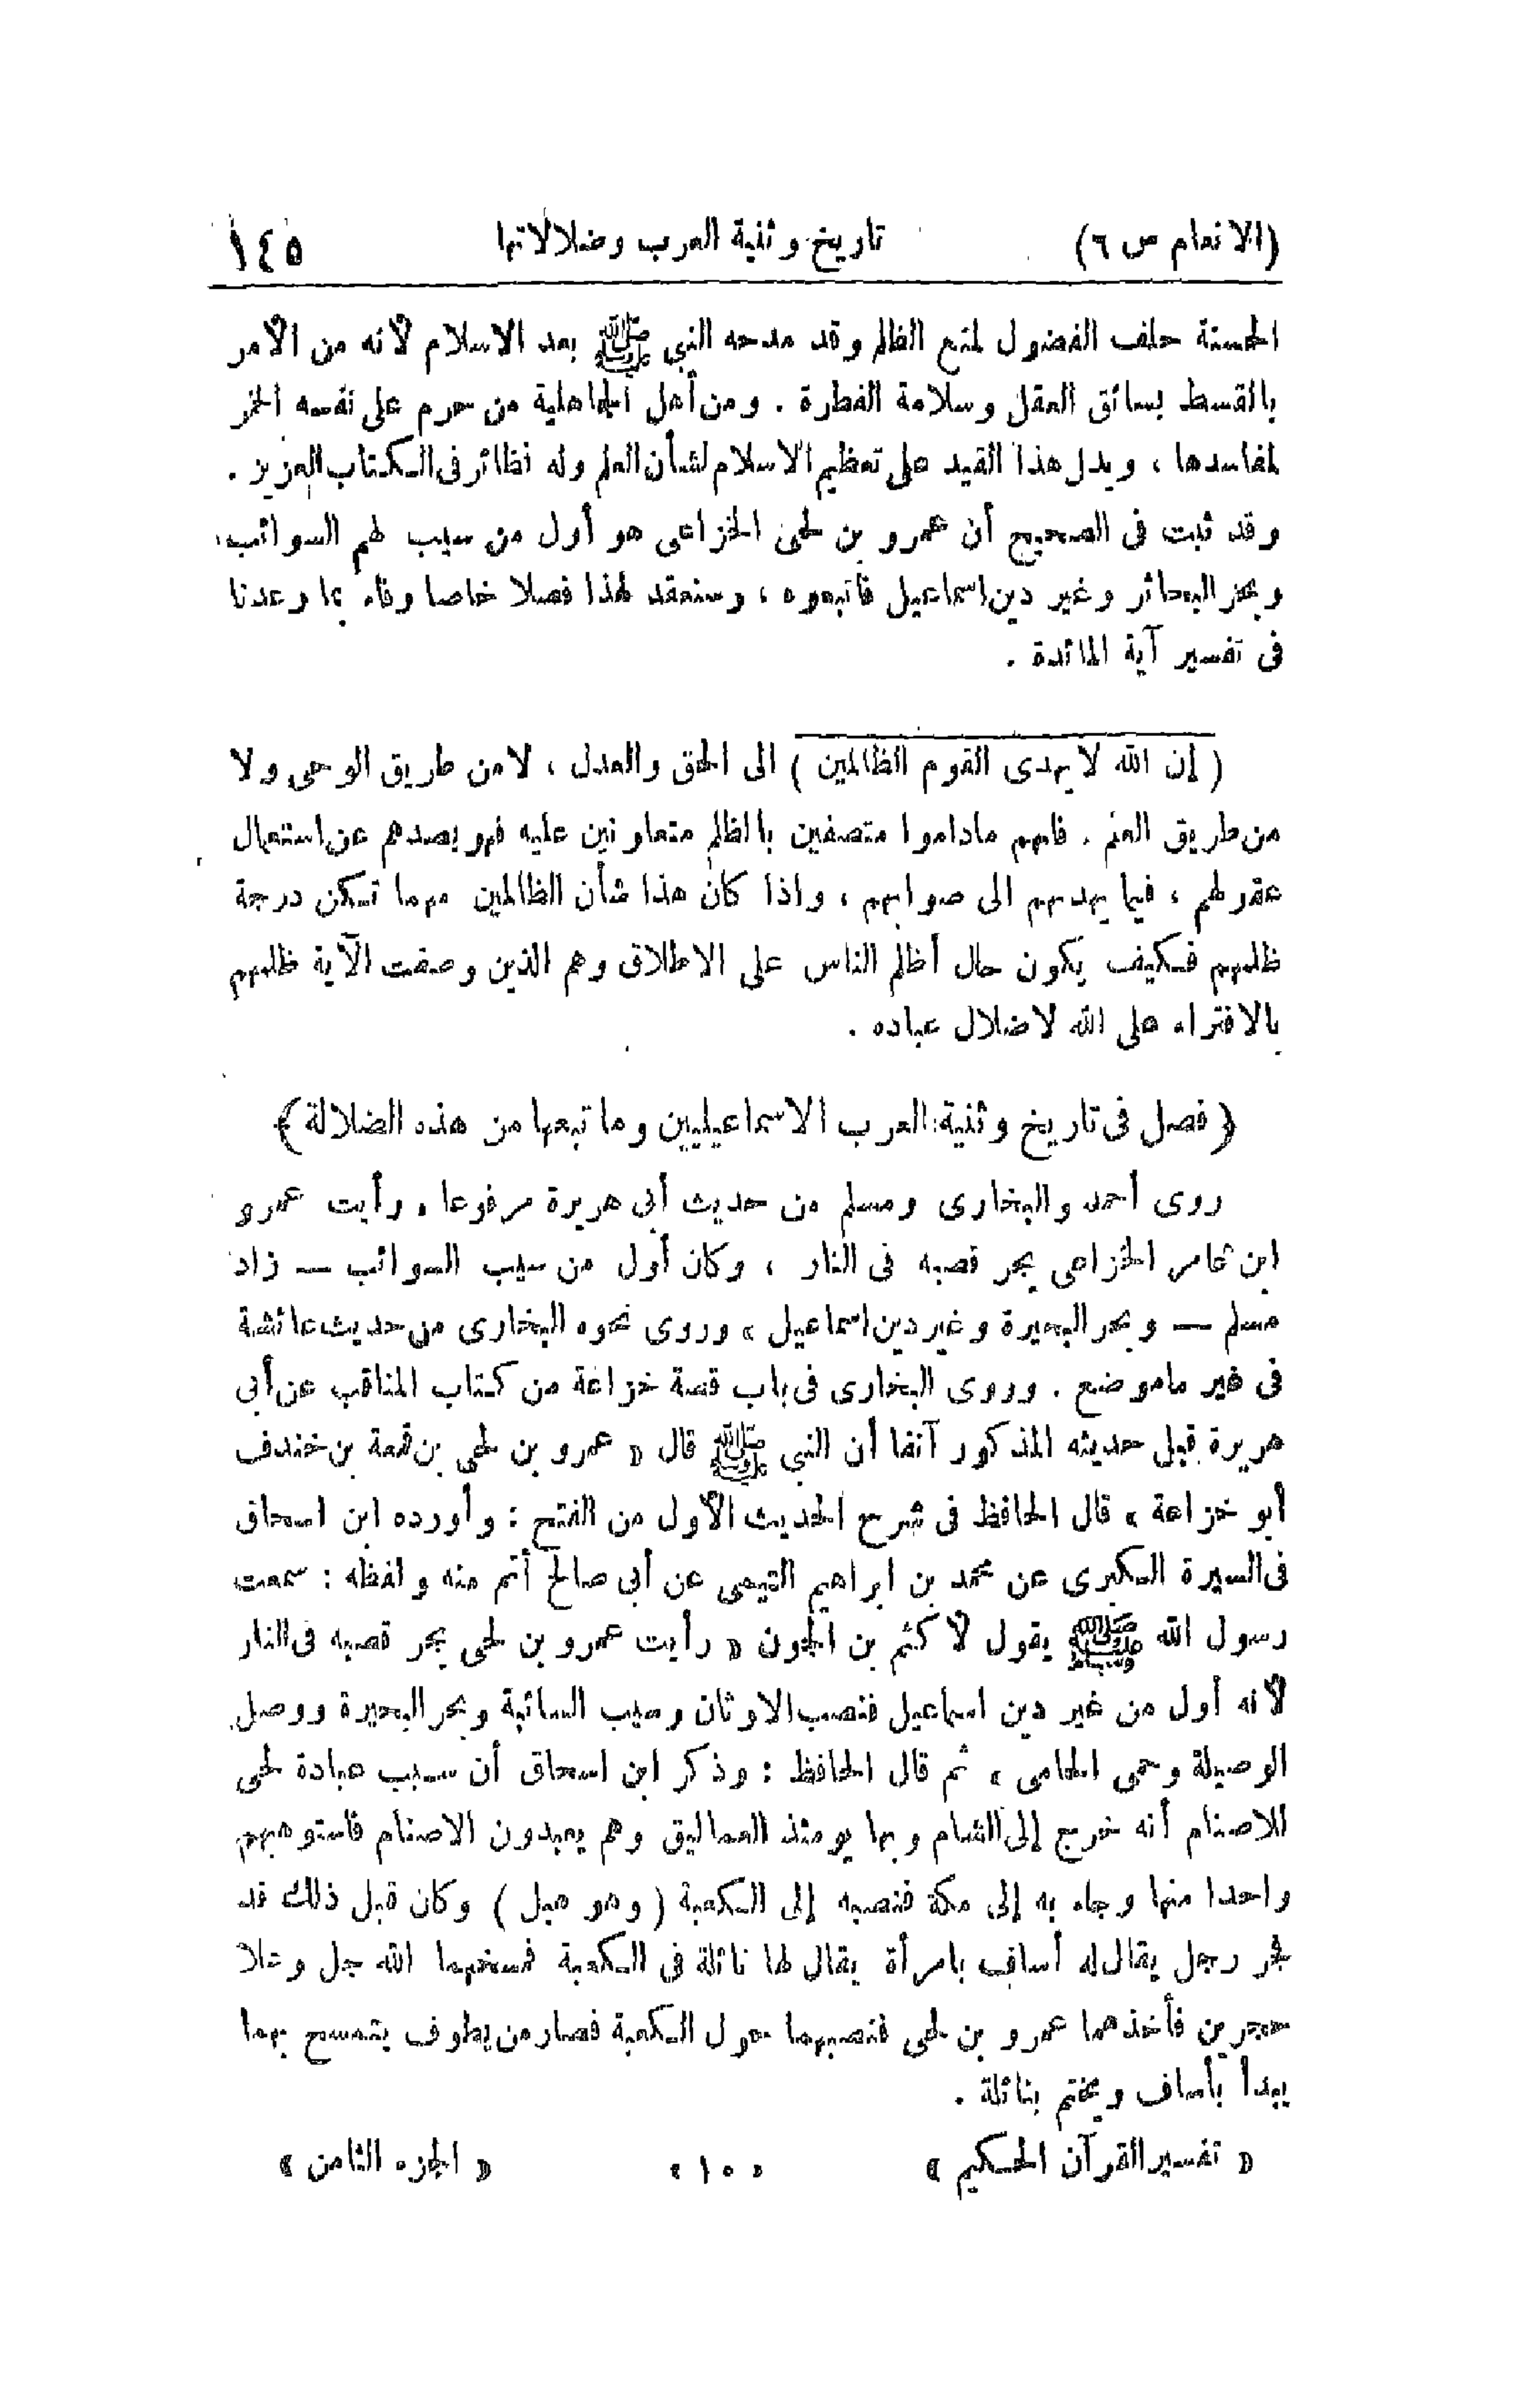 (الانعام س ٦) تاريخ وثنية العرب وضلالاتها ١٤٥
الحسنة حلف الفضول لمنع الظلم وقد مدحه النبي ﷺ بعد الاسلام لأنه من الأمر
بالقسط بسائق العقل وسلامة الفطرة . ومن أهل الجاهلية من حرم على نفسه الخمر
لمفاسدها ، ويدل هذا القيد على تعظيم الاسلام لشأن العلم وله نظائر فى الكتاب العزيز .
وقد ثبت فى الصحيح أن عمرو بن لحى الخزاعى هو أول من سيب لهم السوائب
وبحر البحائر وغير دين اسماعيل فاتبعوه ، وسنعقد لهذا فصلا خاصا وفاء بما وعدنا
فى تفسير آية المائدة .
( إن الله لا يهدى القوم الظالمين ) الى الحق والعدل ، لا من طريق الوحى ولا
من طريق العلم . فانهم ماداموا متصفين بالظلم متعاونين عليه فهو يصدهم عن استعمال
عقولهم ، فيما يهديهم الى صوابهم ، واذا كان هذا شأن الظالمين مهما تكن درجة
ظلمهم فكيف يكون حال أظلم الناس على الاطلاق وهم الذين وصفت الآية ظلمهم
بالافتراء على الله لاضلال عباده .
﴿ فصل فى تاريخ وثنية العرب الاسماعيليين وما تبعها من هذه الضلالة ﴾
روى أحمد والبخارى ومسلم من حديث أبى هريرة مرفوعا « رأيت عمرو
ابن عامر الخزاعى يجر قصبه فى النار ، وكان أول من سيب السوائب — زاد
مسلم — وبحر البحيرة وغير دين اسماعيل » وروى نحوه البخارى من حديث عائشة
فى غير ما موضع . وروى البخارى فى باب قصة خزاعة من كتاب المناقب عن أبى
هريرة قبل حديثه المذكور آنفا أن النبي ﷺ قال « عمرو بن لحى بن قمعة بن خندف
أبو خزاعة » قال الحافظ فى شرح الحديث الأول من الفتح : وأورده ابن اسحاق
فى السيرة الكبرى عن محمد بن ابراهيم التيمى عن أبى صالح أتم منه ولفظه : سمعت
رسول الله ﷺ يقول لأكثم بن الجون « رأيت عمرو بن لحى يجر قصبه فى النار
لأنه أول من غير دين اسماعيل فنصب الاوثان وسيب السائبة وبحر البحيرة ووصل
الوصيلة وحمى الحامى » ثم قال الحافظ : وذكر ابن اسحاق أن سبب عبادة لحى
للاصنام أنه خرج إلى الشام وبها يومئذ العماليق وهم يعبدون الاصنام فاستوهبهم
واحدا منها وجاء به إلى مكة فنصبه إلى الكعبة ( وهو هبل ) وكان قبل ذلك قد
فجر رجل يقال له أساف بامرأة يقال لها نائلة فى الكعبة فمسخهما الله جل وعلا
حجرين فأخذهما عمرو بن لحى فنصبهما حول الكعبة فصار من يطوف يتمسح بهما
يبدأ بأساف ويختم بنائلة .
« تفسير القرآن الحكيم » « ١٠ » « الجزء الثامن »